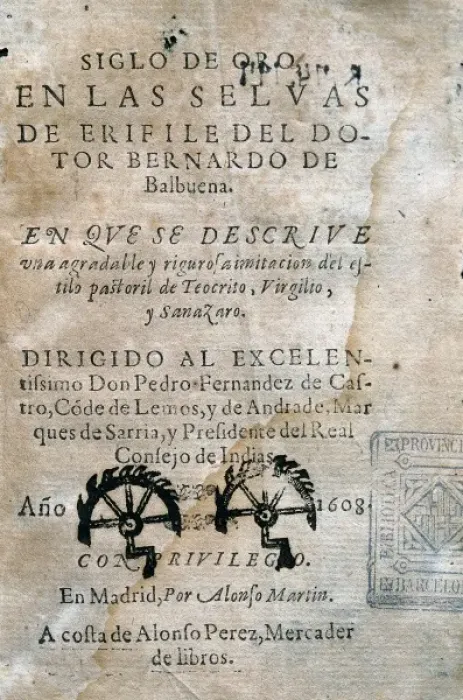 SIGLO DE ORO
EN LAS SELVAS
DE ERIFILE DEL DO-
TOR BERNARDO DE
Balbuena.
EN QVE SE DESCRIVE
vna agradable y riguroſa imitacion del eſ-
tilo paſtoril de Teocrito, Virgilio,
y Sanazaro.
DIRIGIDO AL EXCELEN-
tiſsimo Don Pedro Fernandez de Caſ-
tro, Códe de Lemos, y de Andrade, Mar
ques de Sarria, y Preſidente del Real
Conſejo de Indias.
Año 1608.
CON PRIVILEGIO.
En Madrid, Por Alonſo Martin.
A coſta de Alonſo Perez, Mercader
de libros.
BIBLIOTECA
PROVINCI
BARCELO